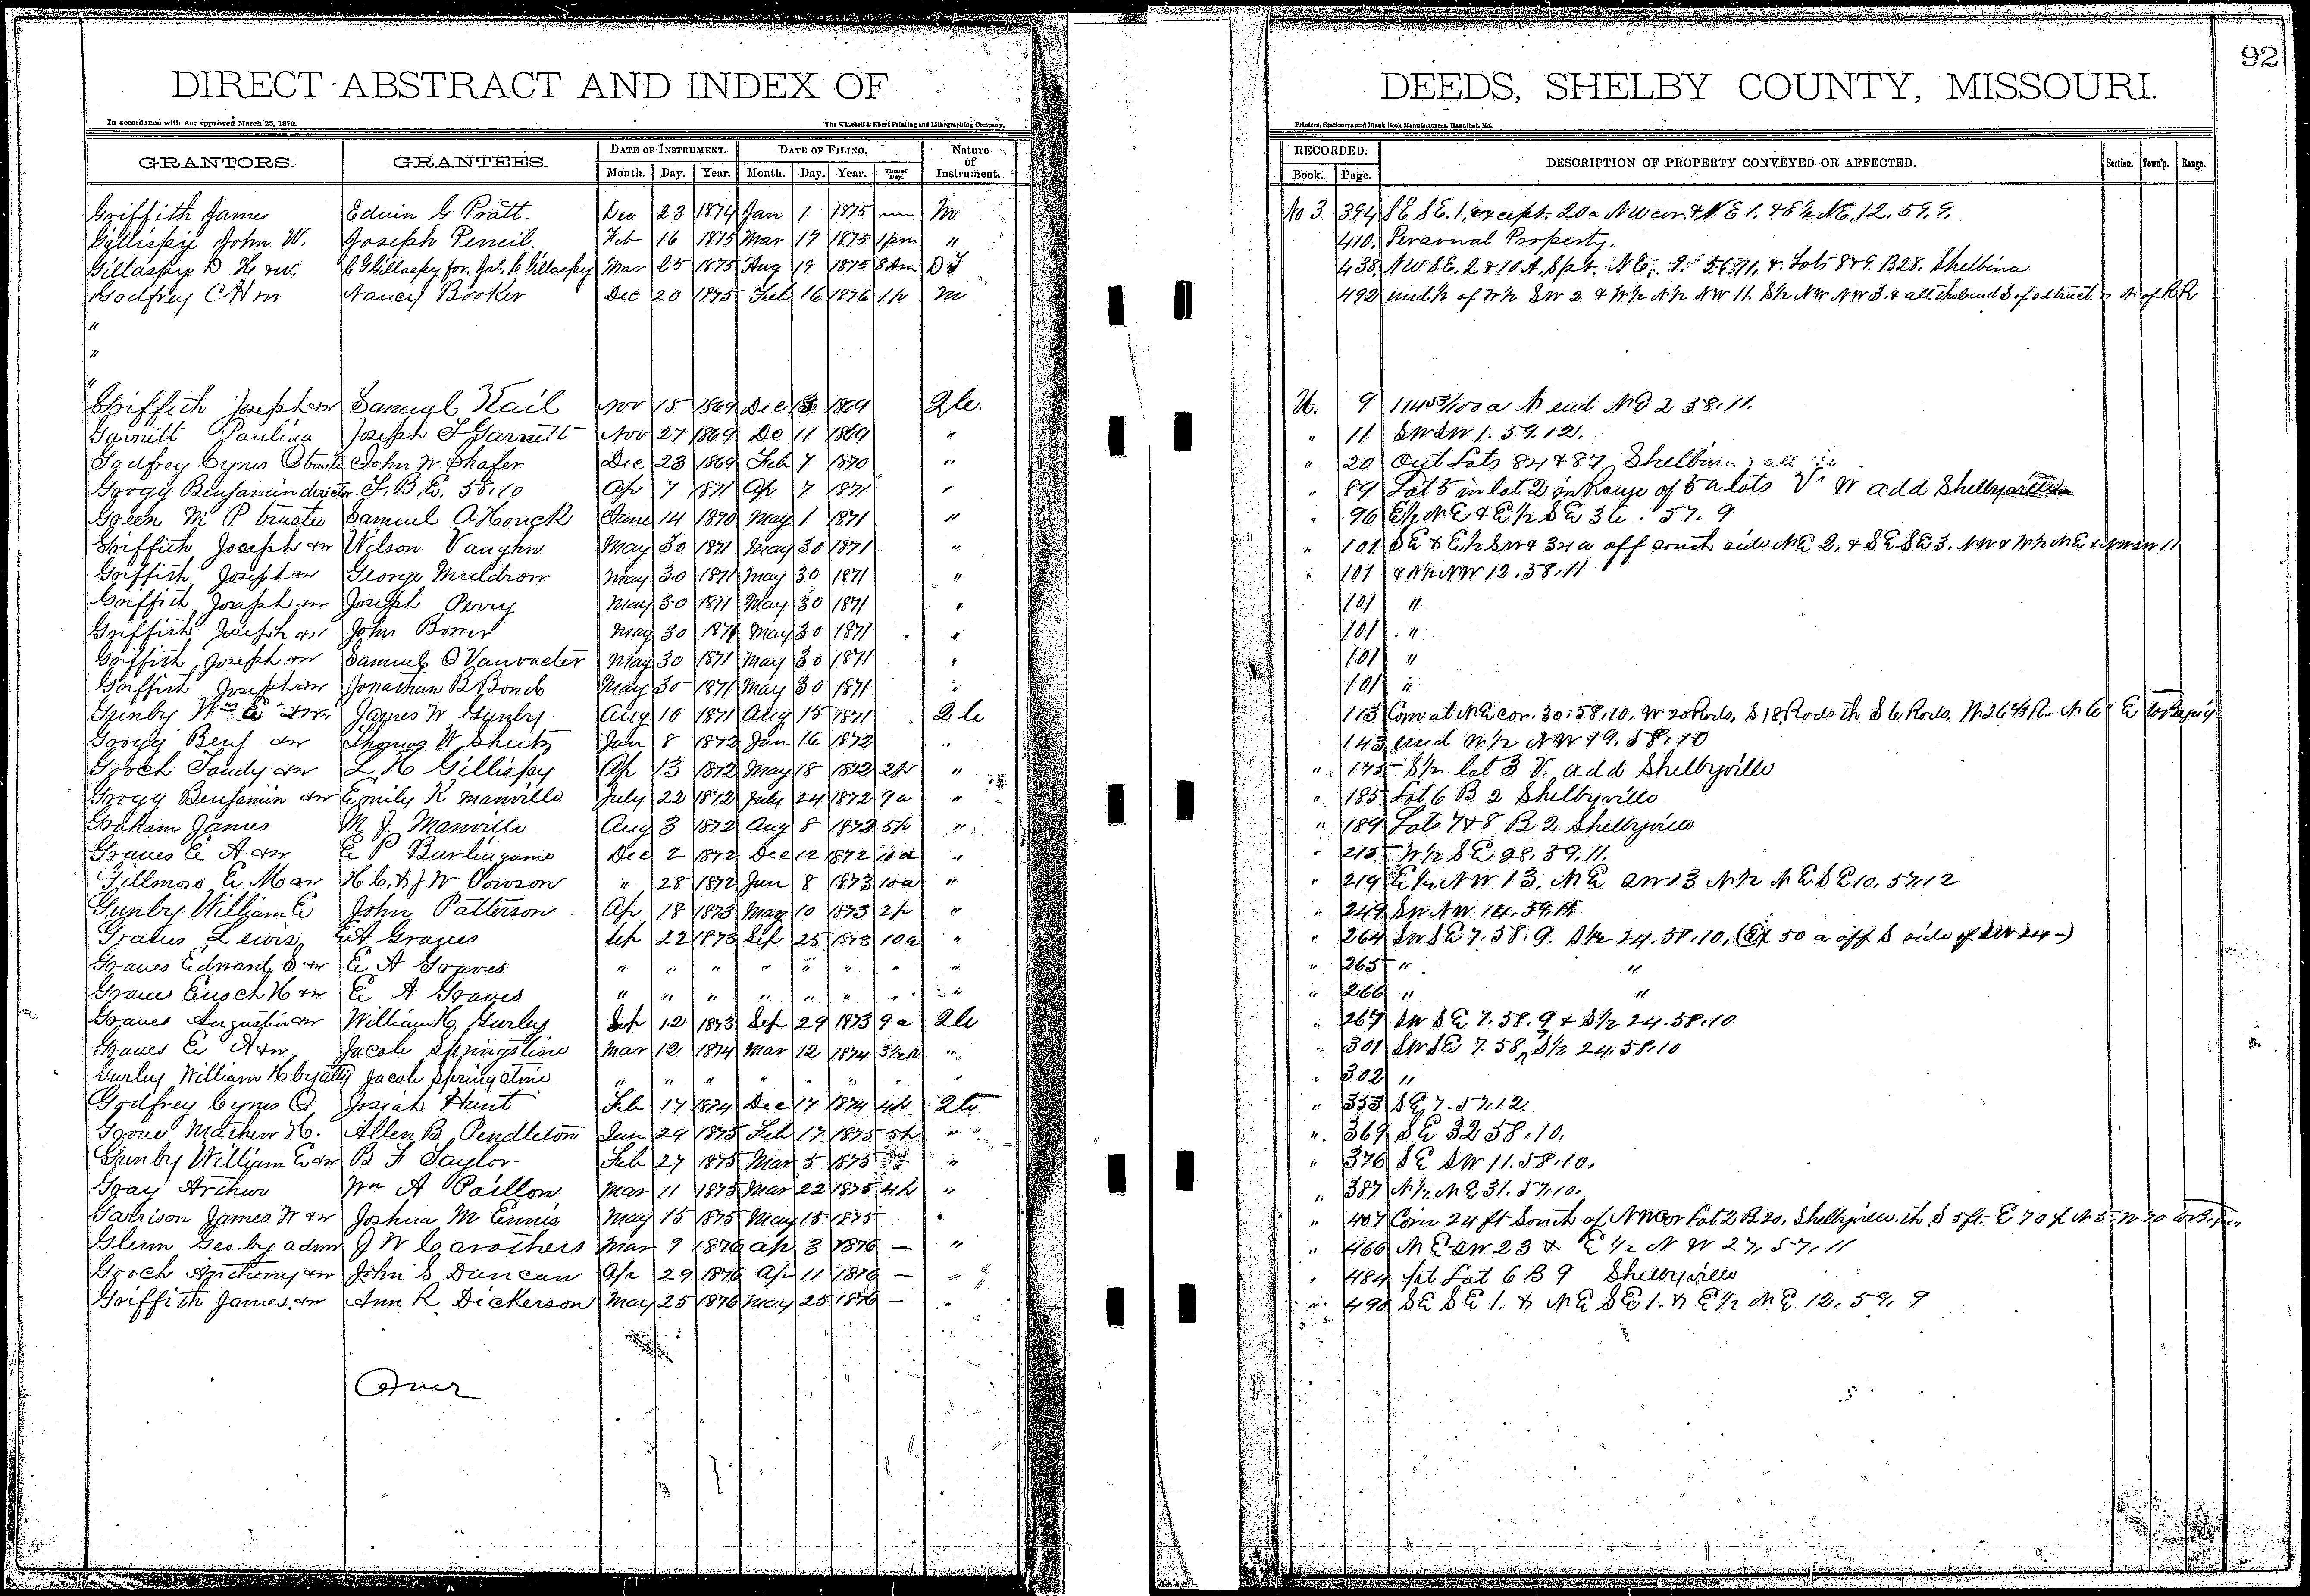 92
DIRECT ABSTRACT AND INDEX OF DEEDS, SHELBY COUNTY, MISSOURI.
In accordance with Act approved March 25, 1870. The Winchell & Ebert Printing and Lithographing Company, Printers, Stationers and Blank Book Manufacturers, Hannibal, Mo.
GRANTORS. GRANTEES. DATE OF INSTRUMENT. DATE OF FILING. Nature of Instrument. RECORDED. DESCRIPTION OF PROPERTY CONVEYED OR AFFECTED. Section. Town'p. Range.
Month. Day. Year. Month. Day. Year. Time of Day. Book. Page.
Griffith James Edwin G Pratt. Dec 23 1874 Jan 1 1875 M No 3 394 SE SE. 1, except. 20a NW cor. & NE 1. & E½ NE. 12. 59. 9.
Gillispie John W. Joseph Pencil. Feb 16 1875 Mar 17 1875 1pm " 410. Personal Property.
Gillaspy D H. &w. C G Gillaspy for. Mar 25 1875 Aug 19 1875 8 Am D T 438 NW SE. 2 & 10 A, & Lots 8 & 9. B 28. Shelbina
Godfrey C Nancy Booker Dec 20 1875 Feb 16 1876 1p M 492 und ½ of W½ SW 2 & W½ N½ NW 11. S½ NW NW 3. & all N of R R
"
"
"
Griffith Joseph &w Samuel Kail Nov 15 1869 Dec 1869 2 C. U. 9 114 53/100 a N end NE 2 58. 11.
Garnett Paulina Joseph Garnett Nov 27 1869 De 11 1869 " " 11 SW SW 1. 59. 12.
Godfrey Cyrus O trustee John W Shafer Dec 23 1869 Feb 7 1870 " " 20 Out Lots 84 & 87
Gorgy Benjamin director 58. 10 Ap 7 1871 Ap 7 1871 " " 89 Lot 5 in lot 2 in Range of 5 a lots V & W add
Green M P trustee Samuel A Houck June 14 1870 May 1 1871 " " 96 E½ NE & E½ SE 36. 57. 9
Griffith Joseph &w Wilson Vaughn May 30 1871 May 30 1871 " " 101 SE & E½ SW & 34 a off south side NE 2. & SE SE 3. NW & W½ NE & NW SW 11
Griffith Joseph &w George Muldrow May 30 1871 May 30 1871 " " 101 & N½ NW 12. 58. 11
Griffith Joseph &w Joseph Perry May 30 1871 May 30 1871 " 101 "
Griffith Joseph &w John Bower May 30 1871 May 30 1871 " 101 "
Griffith Joseph &w Samuel O Vanvacter May 30 1871 May 30 1871 " 101 "
Griffith Joseph &w Jonathan B Bond May 30 1871 May 30 1871 " 101 "
Gunby Wm E &w. James W Gunby Aug 10 1871 Aug 15 1871 2 C 113 Com at NE cor. 30. 58. 10. W 20 Rods, S 18 Rods th S 6 Rods, W 26 ⅔ R.
Gorgy Benj &w Thomas W Sheetz Jan 8 1872 Jan 16 1872 " 143 und W½ NW 19. 58. 10
Gooch Tandy &w L. H Gillispy Ap 13 1872 May 18 1872 2p " " 175 S½ lot 3 V. add Shelbyville
Gorgy Benjamin &w Emily K Manville July 22 1872 July 24 1872 9a " " 185 Lot 6 B 2 Shelbyville
Graham James M. J. Manville Aug 3 1872 Aug 8 1872 5p " " 189 Lots 7 & 8 B 2 Shelbyville
Graves E A &w E P Burlingame Dec 2 1872 Dec 12 1872 10a " " 215 W½ SE 28. 59. 11.
Gillmore E M &w H C. & J W Powson " 28 1872 Jan 8 1873 10a " " 219 E½ NW 13. NE SW 13 N½ NE SE 10. 57. 12
Gunby William E John Patterson Ap 18 1873 May 10 1873 2p " " 249 SW NW 14. 59.
Graves Lewis E A Graves Sep 22 1873 Sep 25 1873 10a " " 264 SW SE 7. 58. 9. S½ 24. 58. 10, (Ex 50 a off S side of SW 24)
Graves Edward S &w E A Graves " " " " " " " " " 265 " "
Graves Enoch H &w E A Graves " " " " " " " " " 266 " "
Graves Augustin &w William H Gurley Sep 12 1873 Sep 29 1873 9a 2 C " 267 SW SE 7. 58. 9 & S½ 24. 58. 10
Graves E A &w Jacob Springstine Mar 12 1874 Mar 12 1874 3½p " " 301 SW SE 7. 58, S½ 24. 58. 10
Gurley William H by atty Jacob Springstine " " " " " " " " 302 "
Godfrey Cyrus O Josiah Hunt Feb 17 1874 Dec 17 1874 4p 2 C " 353 SE 7. 57. 12.
Grove Mathew H. Allen B. Pendleton Jan 29 1875 Feb 17 1875 5p " " 369 SE 32 58. 10.
Gunby William E &w B F Taylor Feb 27 1875 Mar 5 1875 " " 376 SE SW 11. 58. 10.
Gray Archer Wm A Poillon Mar 11 1875 Mar 22 1875 4p " " 387 N½ NE 31. 57. 10.
Garrison James W &w Joshua M Ennis May 15 1875 May 15 1875 " " 407 Com 24 ft South of NW cor Lot 2 B 20. Shelbyville. th S 5 ft. E 70 ft N 5 W 70
Glenn Geo. by admr J W Carothers Mar 9 1876 Ap 3 1876 — " " 466 NE SW 23 & E½ NW 27. 57. 11
Gooch Anthony &w John S Duncan Ap 29 1876 Ap 11 1876 — " " 484 pt Lot 6 B 9 Shelbyville
Griffith James &w Ann R. Dickerson May 25 1876 May 25 1876 — " " 490 SE SE 1. & NE SE 1. & E½ NE 12. 59. 9
Over